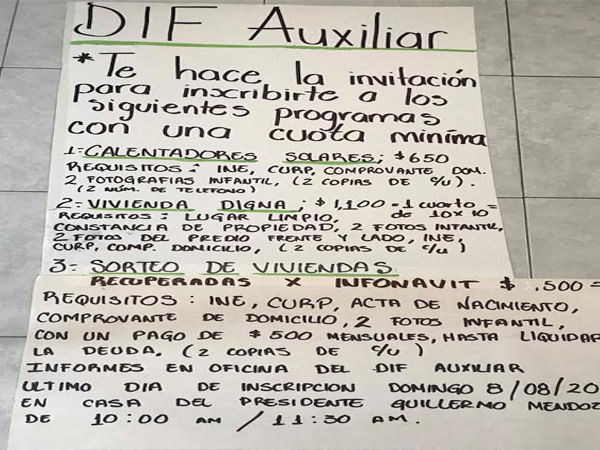 DIF Auxiliar
*Te hace la invitación
para inscribirte a los
siguientes programas
con una cuota mínima
1- CALENTADORES SOLARES; $650
REQUISITOS: INE, CURP, COMPROVANTE DOM.
2 FOTOGRAFIAS INFANTIL, (2 COPIAS DE c/u).
(2 NÚM. DE TELEFONO)
2- VIVIENDA DIGNA; $1,100=1 cuarto =
REQUISITOS: LUGAR LIMPIO, de 10x10
CONSTANCIA DE PROPIEDAD, 2 FOTOS INFANTIL,
2 FOTOS DEL PREDIO FRENTE Y LADO, INE,
CURP, COMP. DOMICILIO, (2 COPIAS DE c/u)
3- SORTEO DE VIVIENDAS
RECUPERADAS X INFONAVIT $ .500=
REQUISITOS: INE, CURP, ACTA DE NACIMIENTO,
COMPROVANTE DE DOMICILIO, 2 FOTOS INFANTIL,
CON UN PAGO DE $500 MENSUALES, HASTA LIQUIDAR
LA DEUDA. (2 COPIAS DE c/u)
INFORMES EN OFICINA DEL DIF AUXILIAR
ULTIMO DIA DE INSCRIPCION DOMINGO 8/08/20
EN CASA DEL PRESIDENTE GUILLERMO MENDOZ
DE 10:00 AM / 11:30 AM.